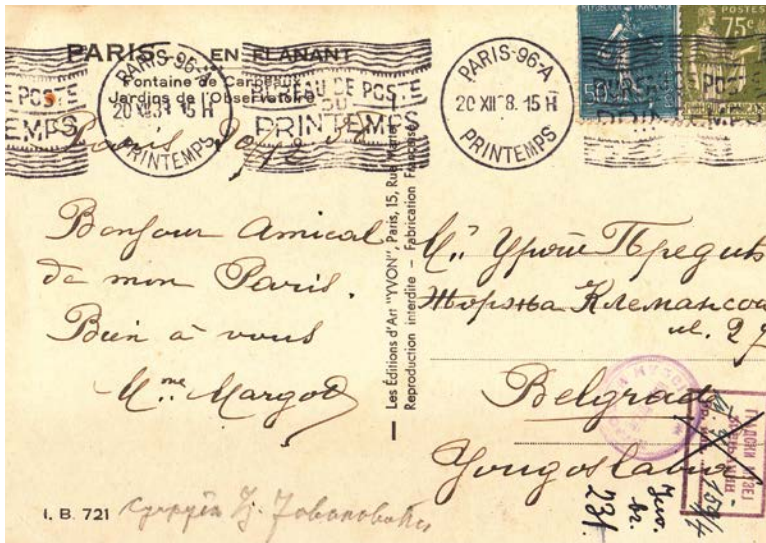 PARIS... EN FLANANT
Fontaine de Carpeaux
Jardins de l'Observatoire
PARIS-96-A
20 XII 38 15 H
PRINTEMPS
BUREAU DE POSTE
DU
PRINTEMPS
E POSTE
EMPS
PARIS-96-A
20 XII 38. 15 H
PRINTEMPS
POSTES
75c
50c
Paris
Bonjour Amical
de mon Paris.
Bien à vous
Mme Margot
Les Éditions d'Art "YVON", Paris, 15, Rue
Reproduction interdite – Fabrication Française
Mr Урош Предић
Жоржа Клемансоа
ул. 27
Belgrade
Yougoslavia
I. B. 721
супруга Ђ. Јовановића
Уло.
бг.
231.